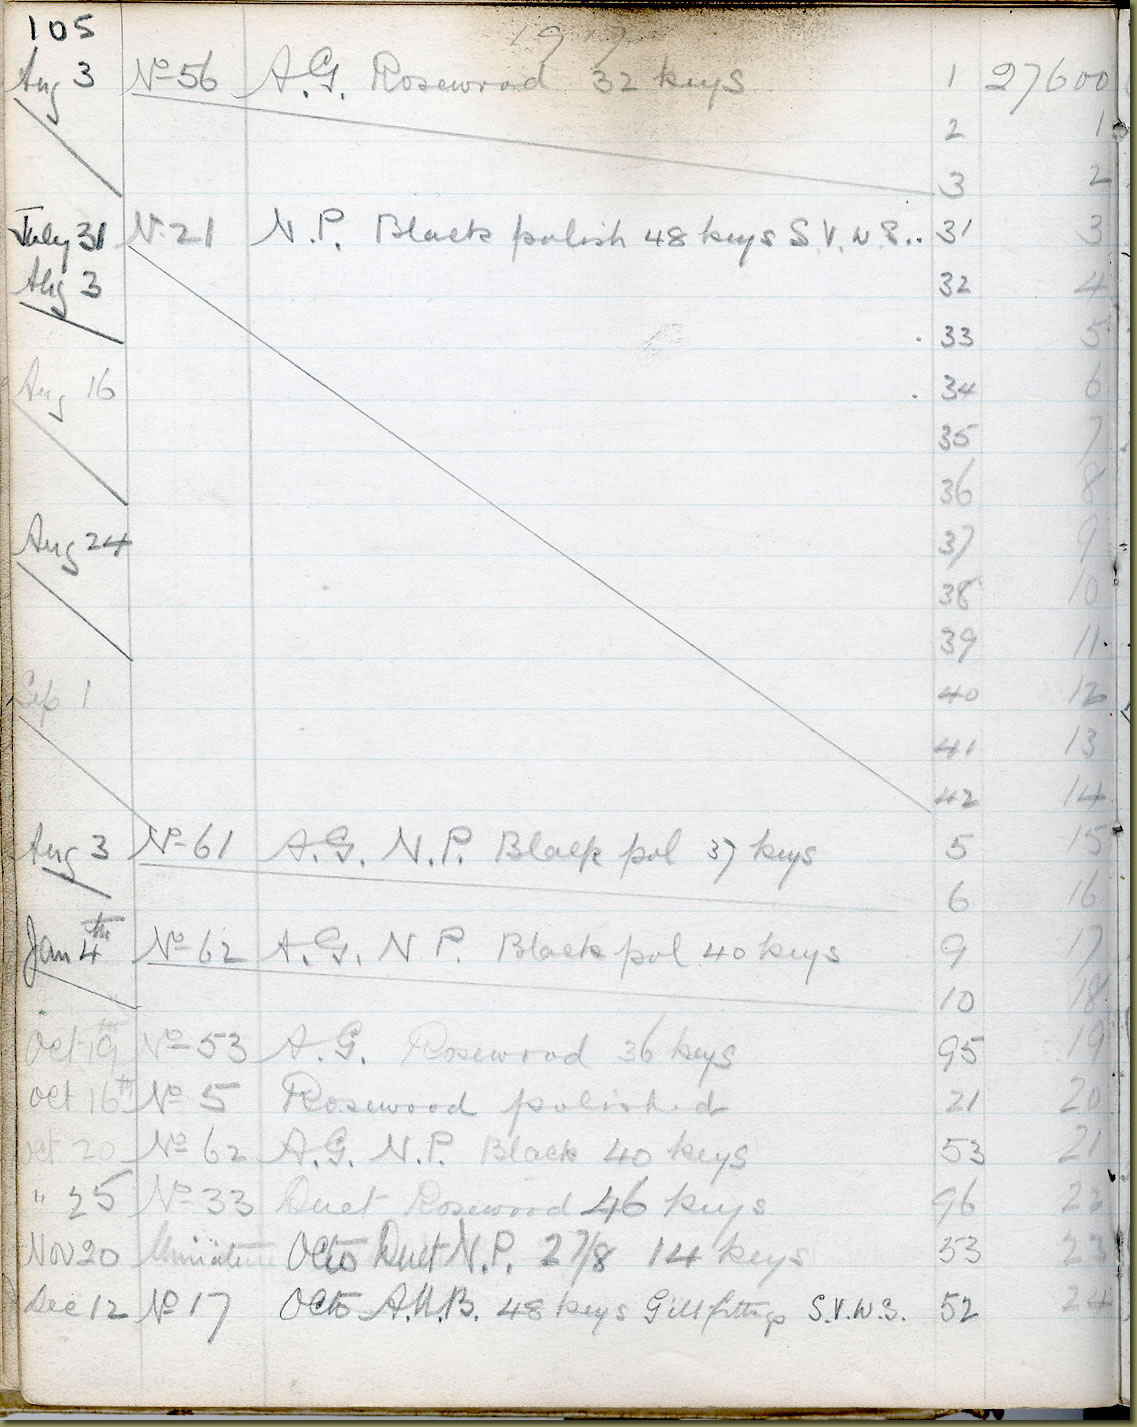 105
19
Aug 3 No 56 A.G. Rosewood 32 keys 1 27600
2 1
3 2
July 31 N. 21 N.P. Black polish 48 keys S.V.W.S.. 31 3
Aug 3 32 4
33 5
Aug 16 34 6
35 7
36 8
Aug 24 37 9
38 10
39 11
Sep 1 40 12
41 13
42 14
Aug 3 No 61 A.G. N.P. Black pol 37 keys 5 15
6 16
Jan 4th No 62 A.G. N.P. Black pol 40 keys 9 17
10 18
Oct 19th No 53 A.G. Rosewood 36 keys 95 19
Oct 16th No 5 Rosewood polished 21 20
Oct 20 No 62 A.G. N.P. Black 40 keys 53 21
" 25 No 33 Duet Rosewood 46 keys 96 22
Nov 20 Miniature Octo Duet N.P. 2 7/8 14 keys 53 23
Dec 12 No 17 Octo 48 keys Gilt fittings S.V.W.S. 52 24